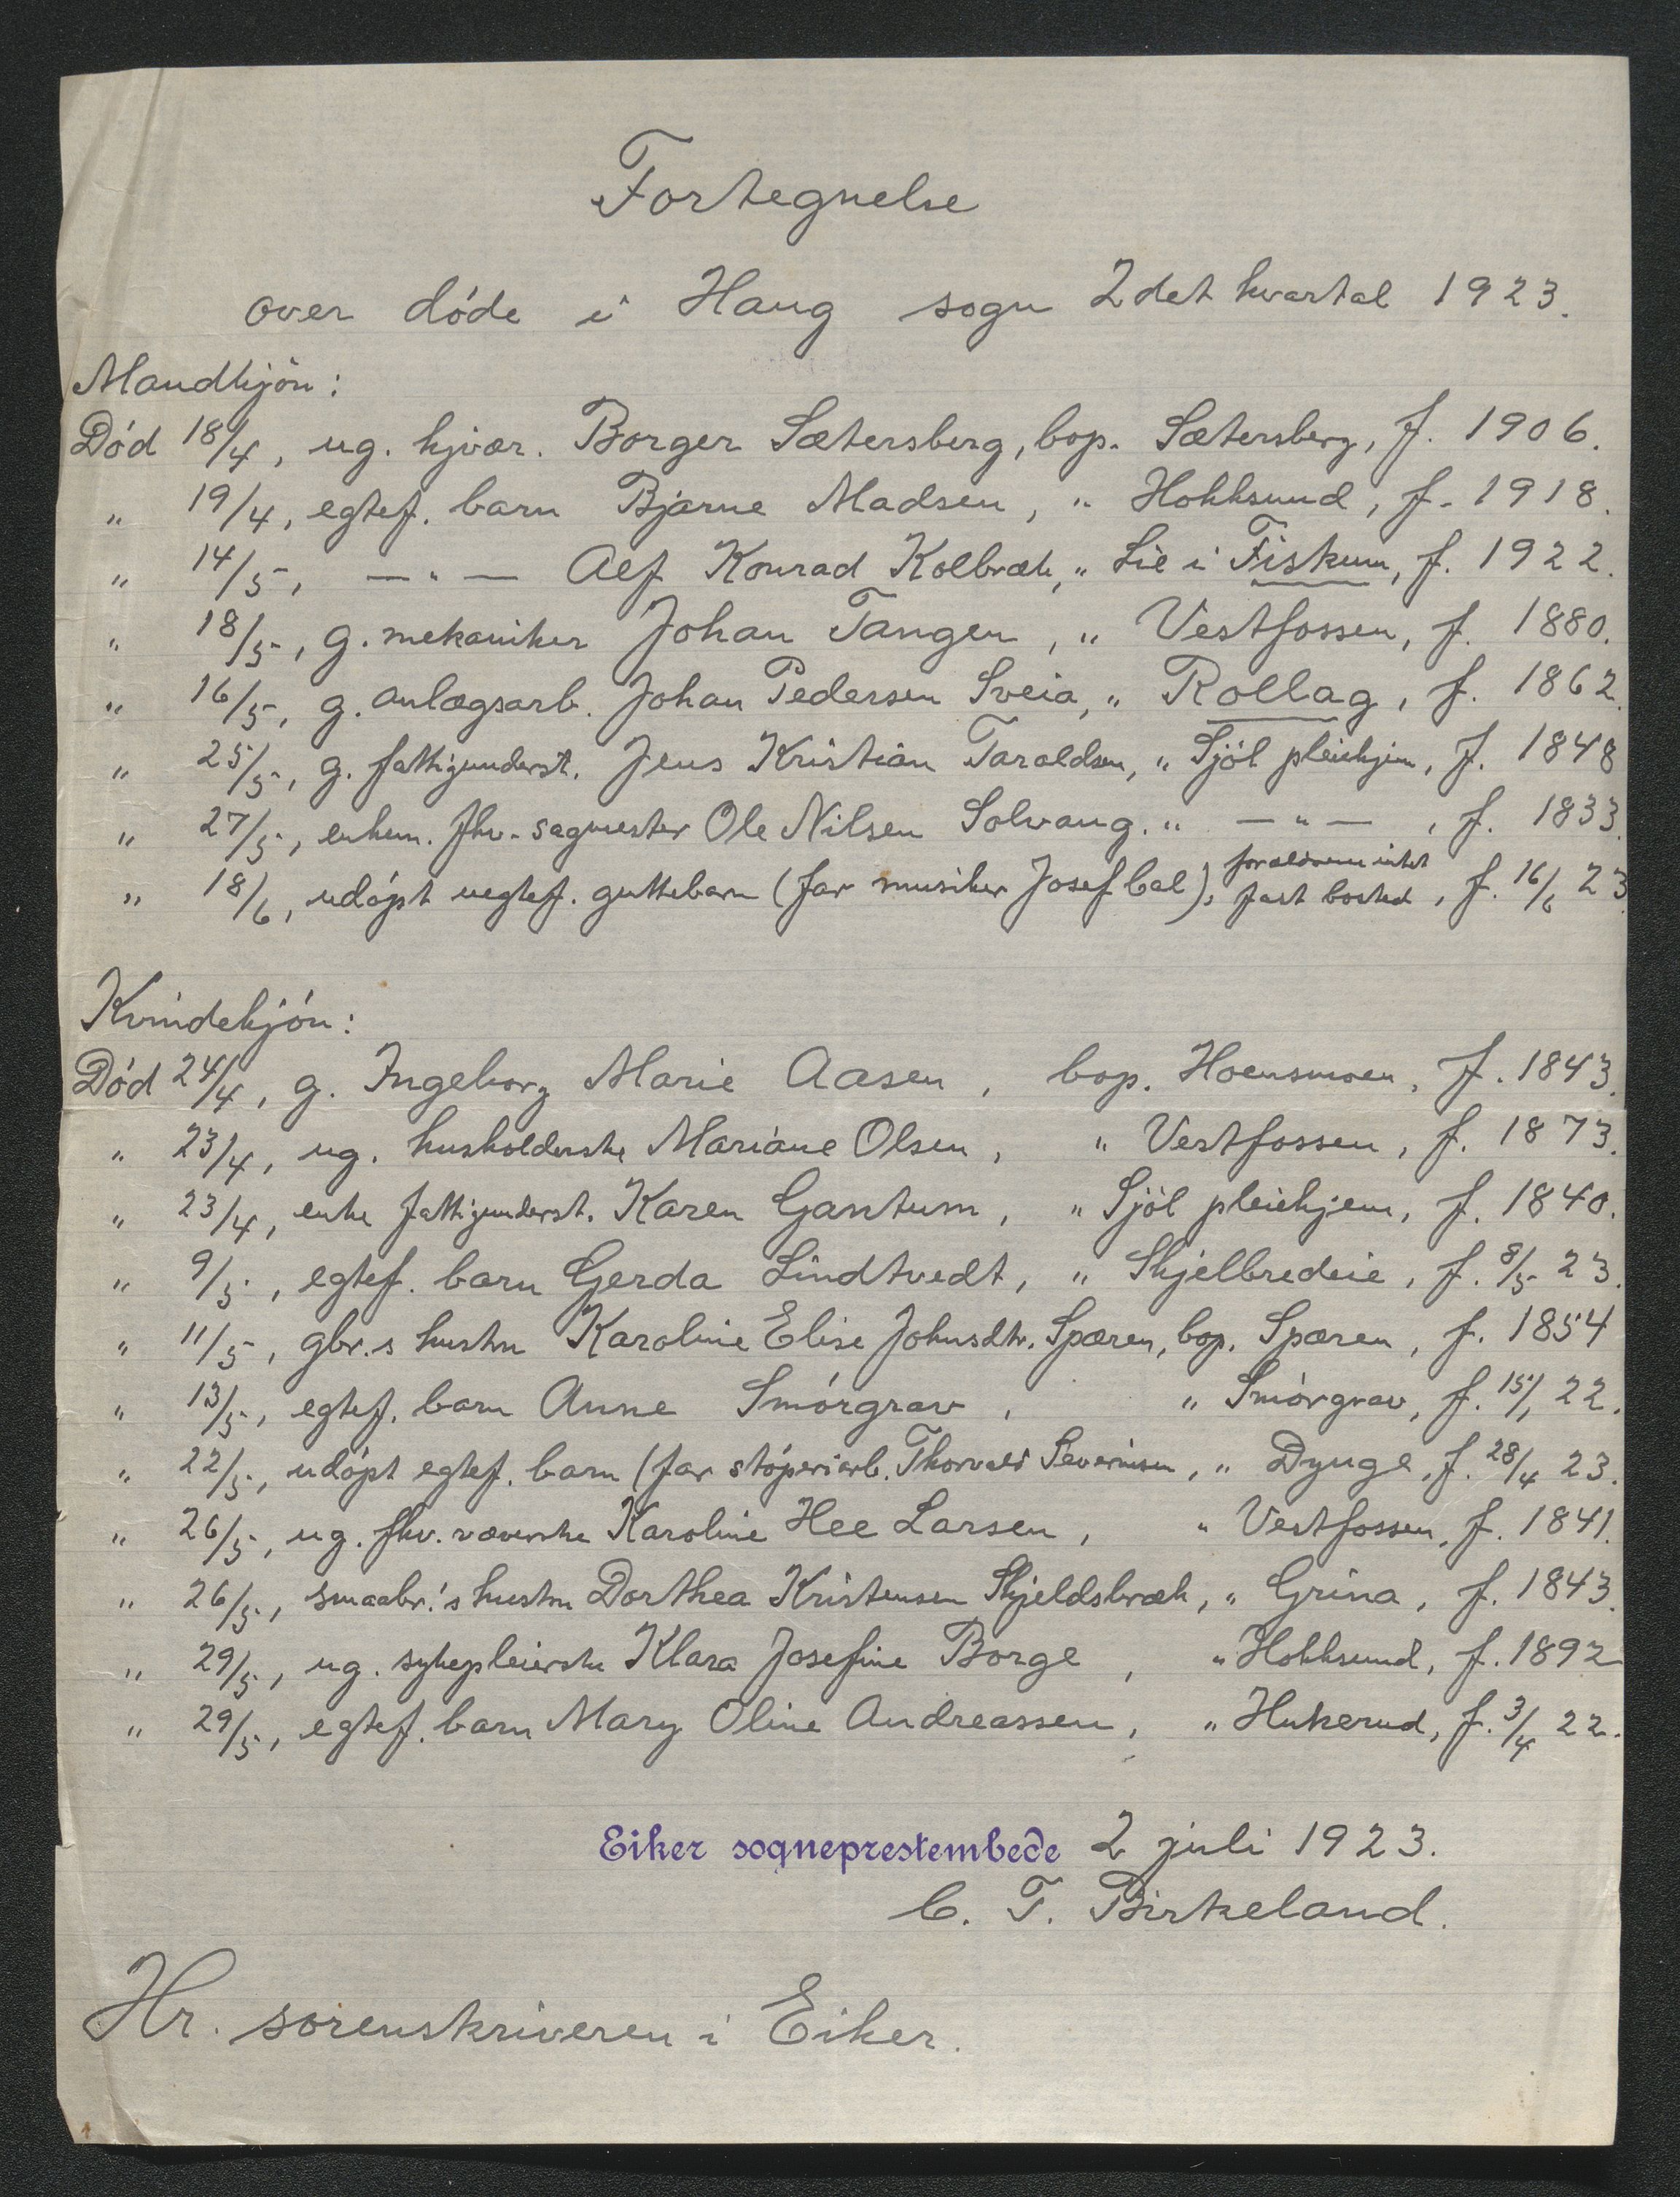 Fortegnelse
over døde i Haug sogn 2det kvartal 1923.
Mandkjøn:
Død 18/4, ug. kjvær. Borger Sætersberg, bop. Sætersberg, f. 1906.
" 19/4, egtef. barn Bjarne Madsen, " Hokksund, f. 1918.
" 14/5, — " — Alf Konrad Kolbræk, " Lie i Fiskum, f. 1922.
" 18/5, g. mekaniker Johan Tangen, " Vestfossen, f. 1880.
" 16/5, g. anlægsarb. Johan Pedersen Sveia, " Rollag, f. 1862.
" 25/5, g. fattigunderst. Jens Kristian Taraldsen, " Sjøl pleiehjem, f. 1848
" 27/5, enkem. fhv. sagmester Ole Nilsen Solvang. " — " — , f. 1833.
" 18/6, udøpt uegtef. guttebarn (far musiker Josef Cal), forældrene intet fast bosted, f. 16/6 23.
Kvindekjøn:
Død 24/4, g. Ingeborg Marie Aasen, bop. Hoensmoen, f. 1843.
" 23/4, ug. husholderske Mariane Olsen, " Vestfossen, f. 1873.
" 23/4, enke fattigunderst. Karen Gantum, " Sjøl pleiehjem, f. 1840.
" 9/5, egtef. barn Gerda Lindtvedt, " Skjelbredeie, f. 8/5 23.
" 11/5, gbr.s hustru Karoline Elise Johnsdtr. Spæren, bop. Spæren, f. 1854
" 13/5, egtef. barn Anne Smørgrav, " Smørgrav, f. 15/1 22.
" 22/5, udøpt egtef. barn (far støperiarb. Thorvald Severinsen, " Dynge, f. 28/4 23.
" 26/5, ug. fhv. væverske Karoline Hee Larsen, " Vestfossen, f. 1841.
" 26/5, smaabr.'s hustru Dorthea Kristensen Skjeldsbræk, " Grina, f. 1843.
" 29/5, ug. sykepleierske Klara Josefine Borge, " Hokksund, f. 1892
" 29/5, egtef. barn Mary Oline Andreassen, " Hukerud, f. 3/4 22.
Eiker sogneprestembede 2 juli 1923.
C. T. Birkeland.
Hr. sorenskriveren i Eiker.